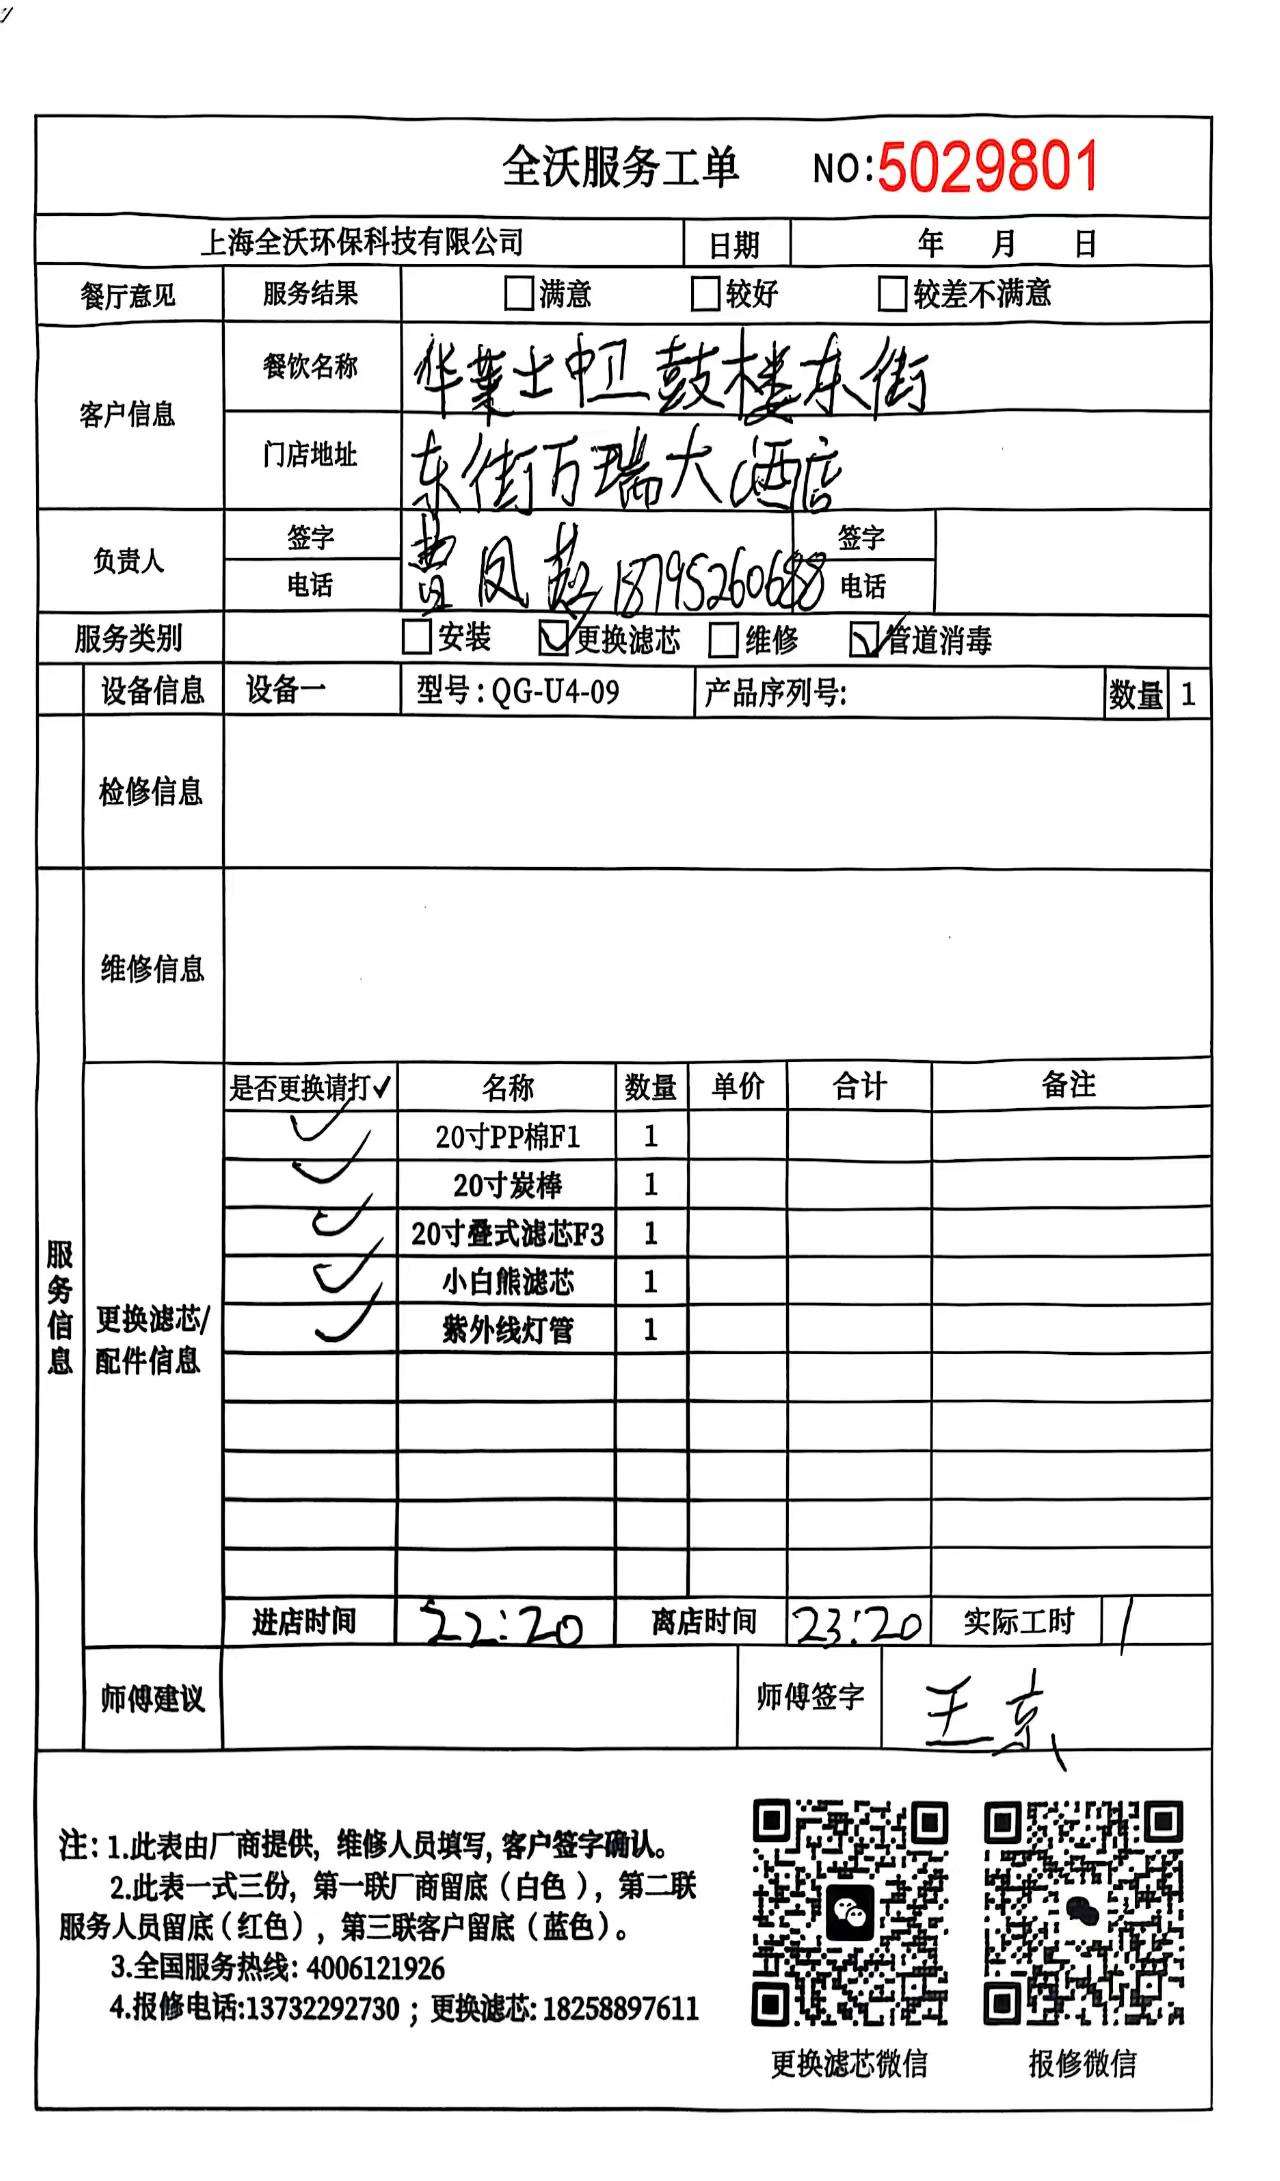 全沃服务工单 NO:5029801
上海全沃环保科技有限公司 日期 年 月 日
餐厅意见 服务结果 □满意 □较好 □较差不满意
客户信息 餐饮名称 华莱士中卫鼓楼东街
门店地址 东街万瑞大酒店
负责人 签字 曹凤 签字
电话 电话
服务类别 □安装 ☑更换滤芯 □维修 ☑管道消毒
设备信息 设备一 型号:QG-U4-09 产品序列号: 数量 1
检修信息
维修信息
服务信息
更换滤芯/配件信息
是否更换请打✓ 名称 数量 单价 合计 备注
✓ 20寸PP棉F1 1
✓ 20寸炭棒 1
✓ 20寸叠式滤芯F3 1
✓ 小白熊滤芯 1
✓ 紫外线灯管 1
进店时间 22:20 离店时间 23:20 实际工时 1
师傅建议 师傅签字 王京
注: 1.此表由厂商提供, 维修人员填写, 客户签字确认。
2.此表一式三份, 第一联厂商留底(白色), 第二联
服务人员留底(红色), 第三联客户留底(蓝色)。
3.全国服务热线: 4006121926
4.报修电话:13732292730 ; 更换滤芯: 18258897611
更换滤芯微信 报修微信